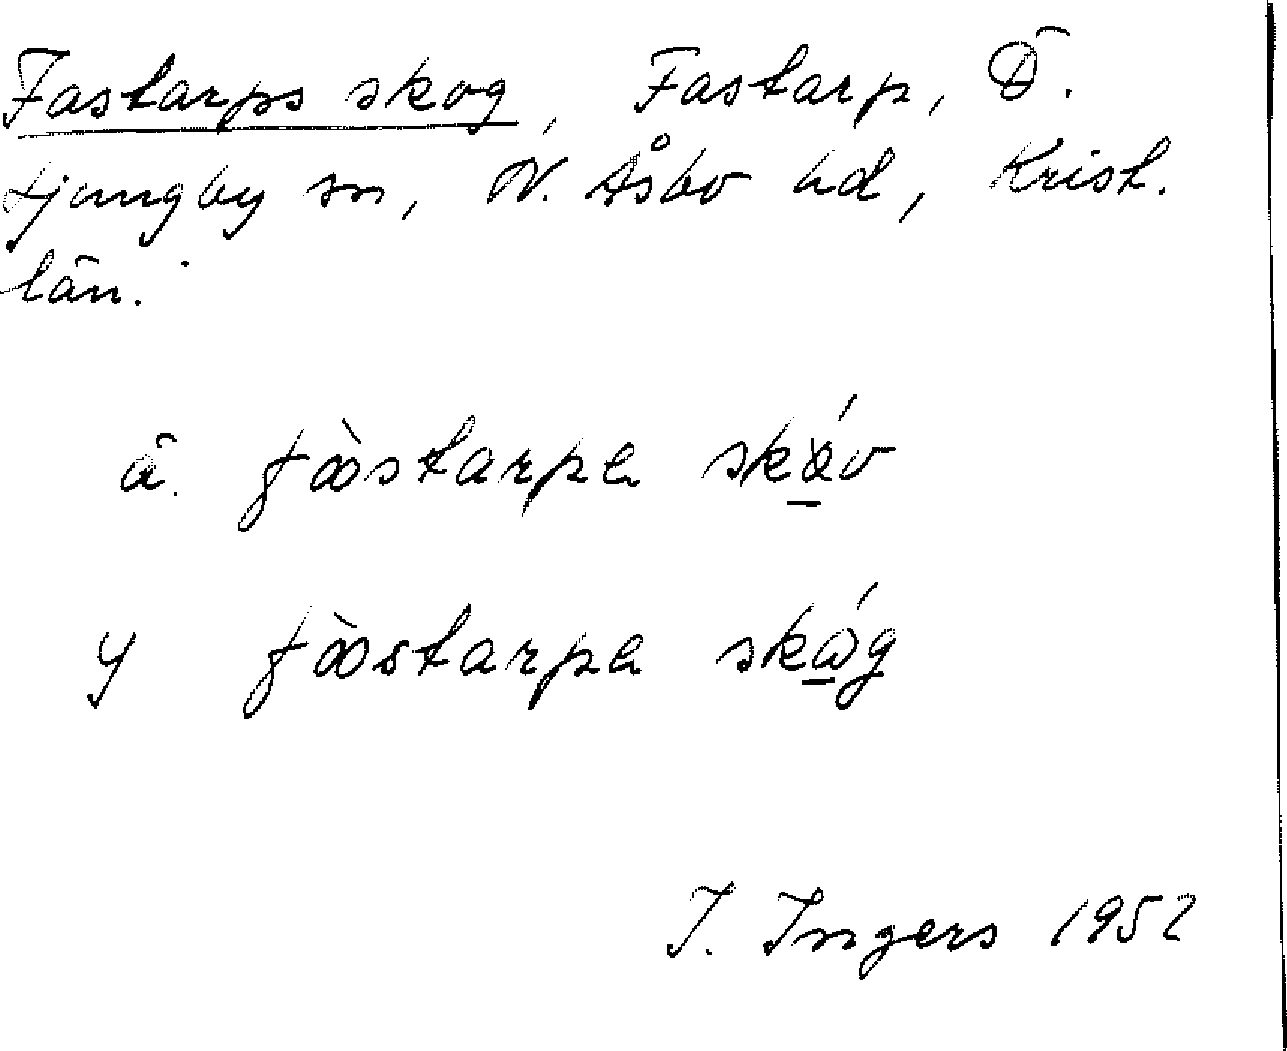 Fastarps skog, Fastarp, Ö.
Ljungby sn, N. Åsbo hd, Krist.
län.
ä. fàstarpa skáv
y fàstarpa skóg
I. Ingers 1952